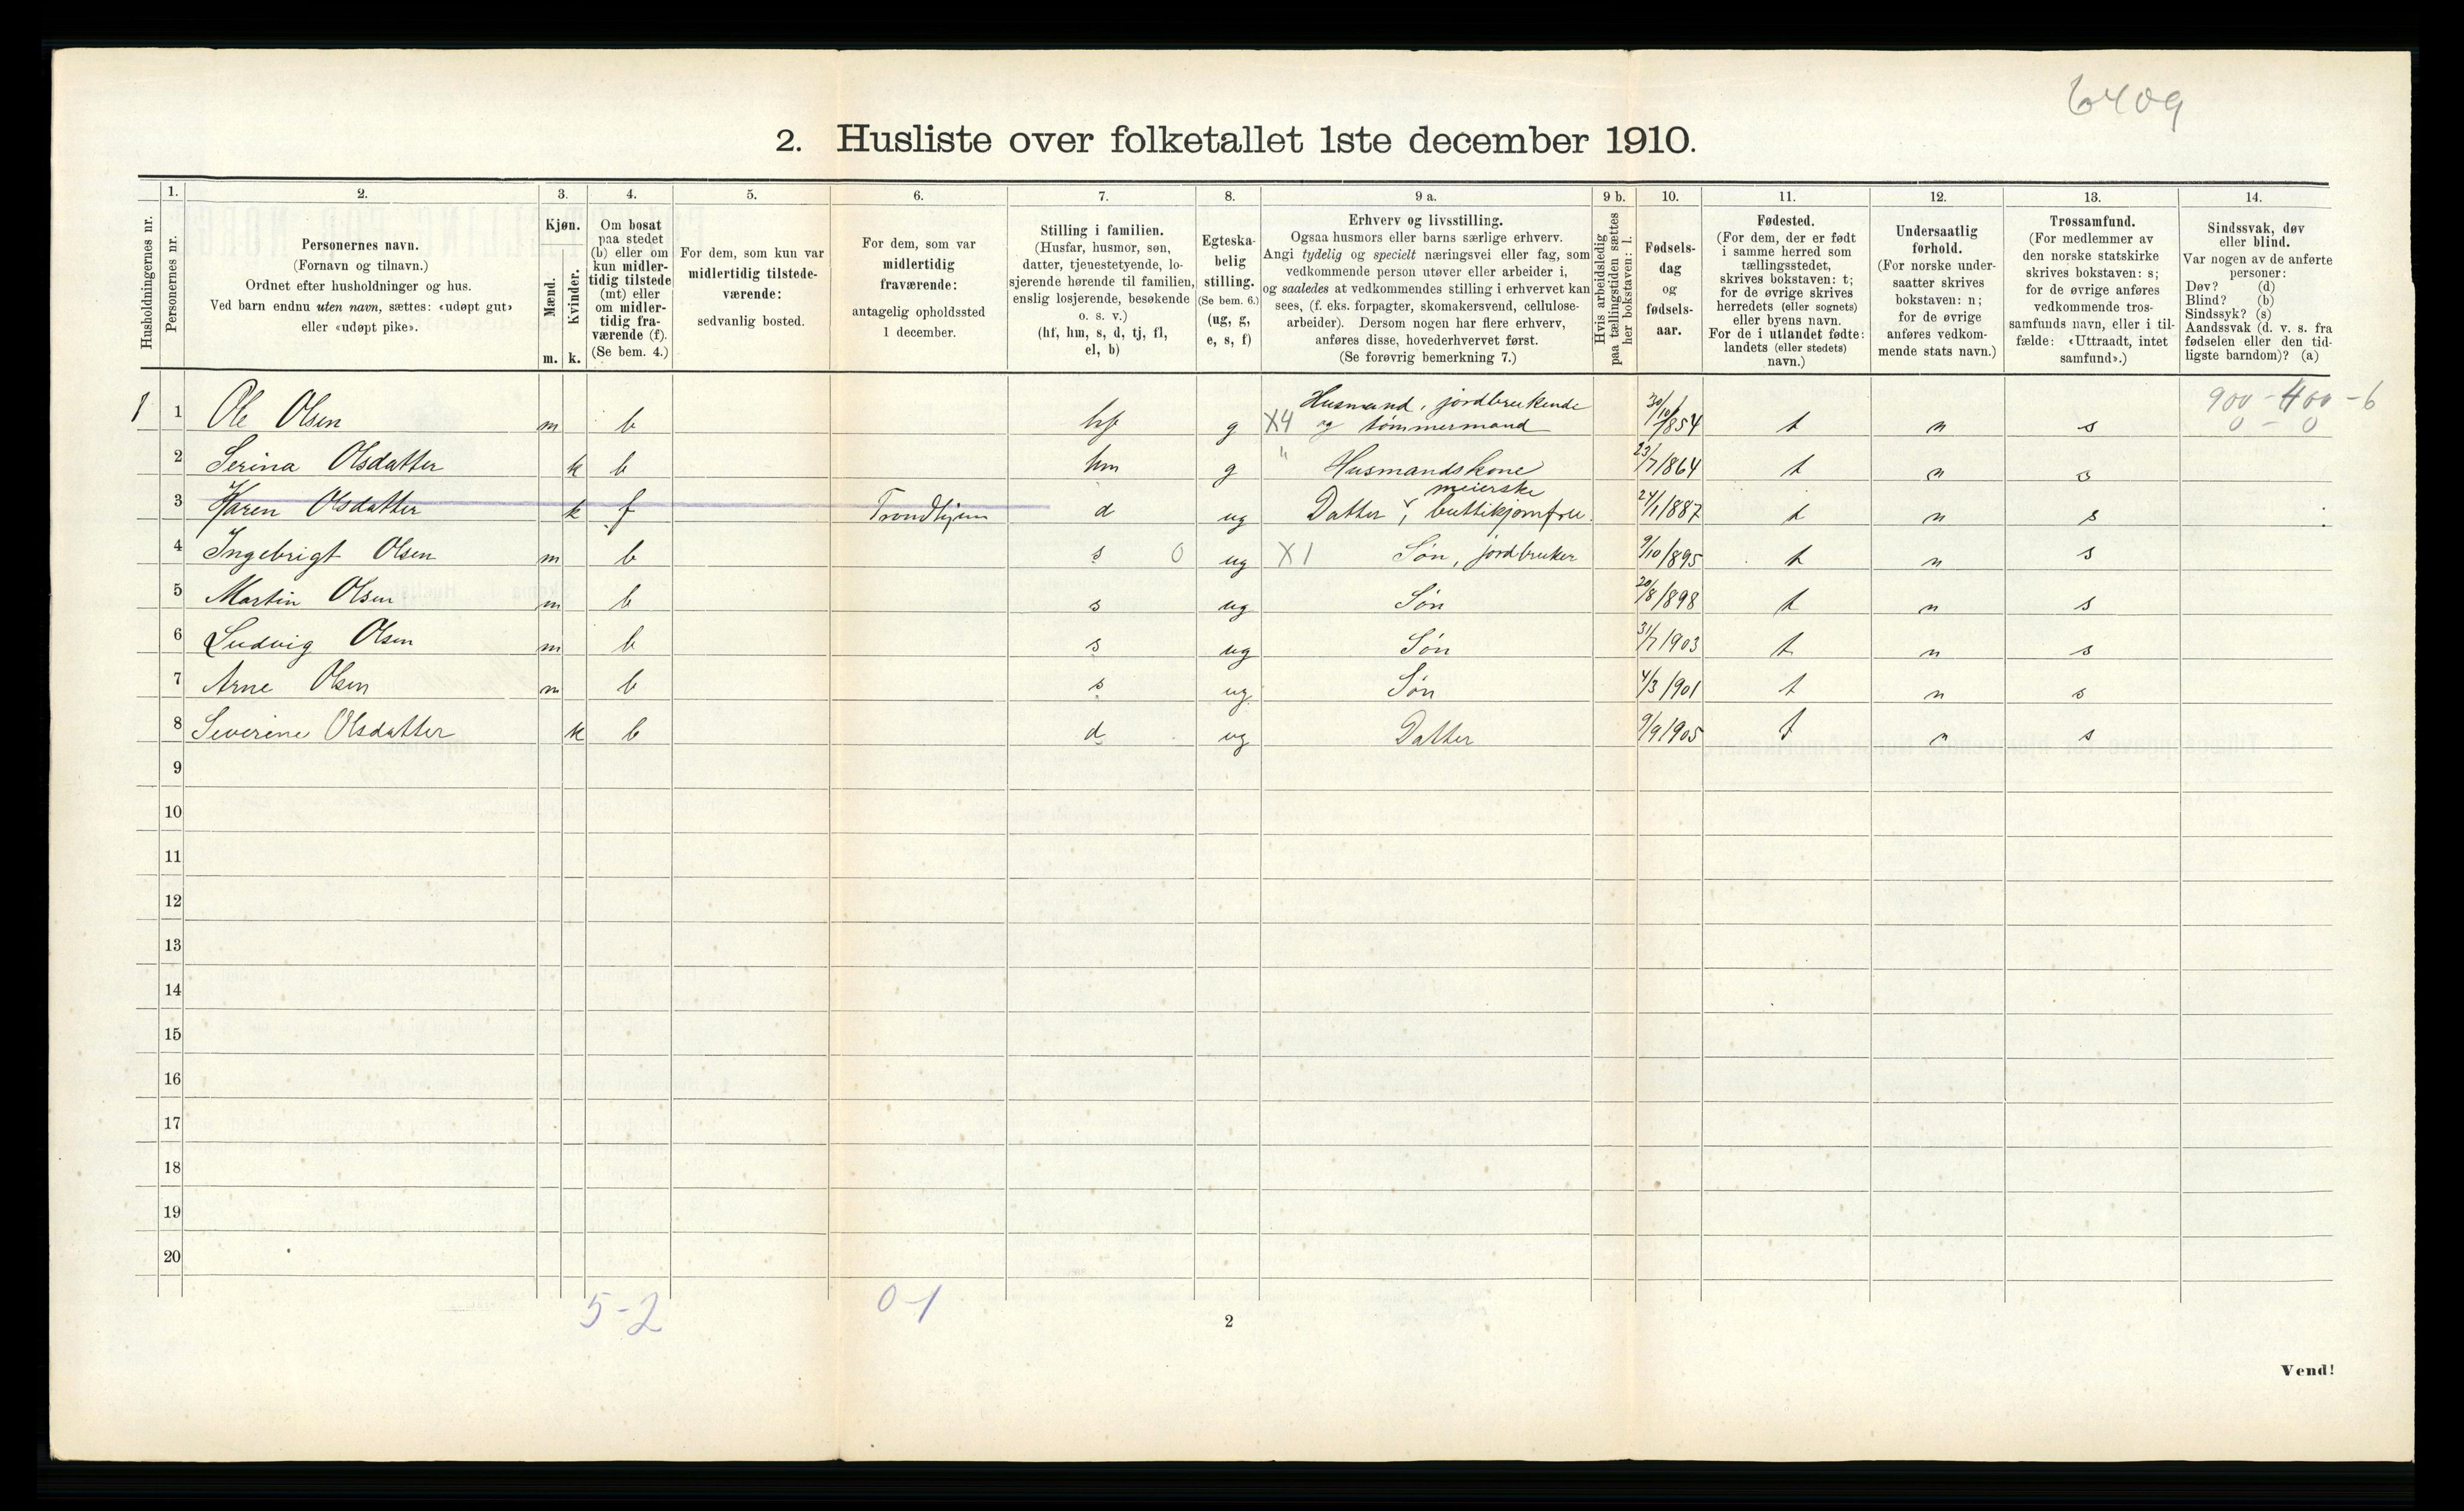 6409
2. Husliste over folketallet 1ste december 1910.
Husholdningernes nr.
1.
Personernes nr.
2.
Personernes navn.
(Fornavn og tilnavn.)
Ordnet efter husholdninger og hus.
Ved barn endnu uten navn, sættes: «udøpt gut»
eller «udøpt pike».
3.
Kjøn.
Mænd.
Kvinder.
m. k.
4.
Om bosat
paa stedet
(b) eller om
kun midler-
tidig tilstede
(mt) eller
om midler-
tidig fra-
værende (f).
(Se bem. 4.)
5.
For dem, som kun var
midlertidig tilstede-
værende:
sedvanlig bosted.
6.
For dem, som var
midlertidig
fraværende:
antagelig opholdssted
1 december.
7.
Stilling i familien.
(Husfar, husmor, søn,
datter, tjenestetyende, lo-
sjerende hørende til familien,
enslig losjerende, besøkende
o. s. v.)
(hf, hm, s, d, tj, fl,
el, b)
8.
Egteska-
belig
stilling.
(Se bem. 6.)
(ug, g,
e, s, f)
9 a.
Erhverv og livsstilling.
Ogsaa husmors eller barns særlige erhverv.
Angi tydelig og specielt næringsvei eller fag, som
vedkommende person utøver eller arbeider i,
og saaledes at vedkommendes stilling i erhvervet kan
sees, (f. eks. forpagter, skomakersvend, cellulose-
arbeider). Dersom nogen har flere erhverv,
anføres disse, hovederhvervet først.
(Se forøvrig bemerkning 7.)
9 b.
Hvis arbeidsledig
paa tællingstiden sættes
her bokstaven: l.
10.
Fødsels-
dag
og
fødsels-
aar.
11.
Fødested.
(For dem, der er født
i samme herred som
tællingsstedet,
skrives bokstaven: t;
for de øvrige skrives
herredets (eller sognets)
eller byens navn.
For de i utlandet fødte:
landets (eller stedets)
navn.)
12.
Undersaatlig
forhold.
(For norske under-
saatter skrives
bokstaven: n;
for de øvrige
anføres vedkom-
mende stats navn.)
13.
Trossamfund.
(For medlemmer av
den norske statskirke
skrives bokstaven: s;
for de øvrige anføres
vedkommende tros-
samfunds navn, eller i til-
fælde: «Uttraadt, intet
samfund».)
14.
Sindssvak, døv
eller blind.
Var nogen av de anførte
personer:
Døv? (d)
Blind? (b)
Sindssyk? (s)
Aandssvak (d. v. s. fra
fødselen eller den tid-
ligste barndom)? (a)
1 1 Ole Olsen m b hf g X4 Husmand, jordbrukende og tømmermand 30/10 1854 t n s 900 - 400 - 6 0 - 0
2 Serina Olsdatter k b hm g " Husmandskone 23/7 1864 t n s
3 Karen Olsdatter k f Trondhjem d ug Datter, meierske buttikjomfru 24/1 1887 t n s
4 Ingebrigt Olsen m b s 0 ug X1 Søn, jordbruker 9/10 1895 t n s
5 Martin Olsen m b s ug Søn 20/8 1898 t n s
6 Ludvig Olsen m b s ug Søn 31/7 1903 t n s
7 Arne Olsen m b s ug Søn 4/3 1901 t n s
8 Severine Olsdatter k b d ug Datter 9/9 1905 t n s
9
10
11
12
13
14
15
16
17
18
19
20
5-2 0-1
2
Vend!